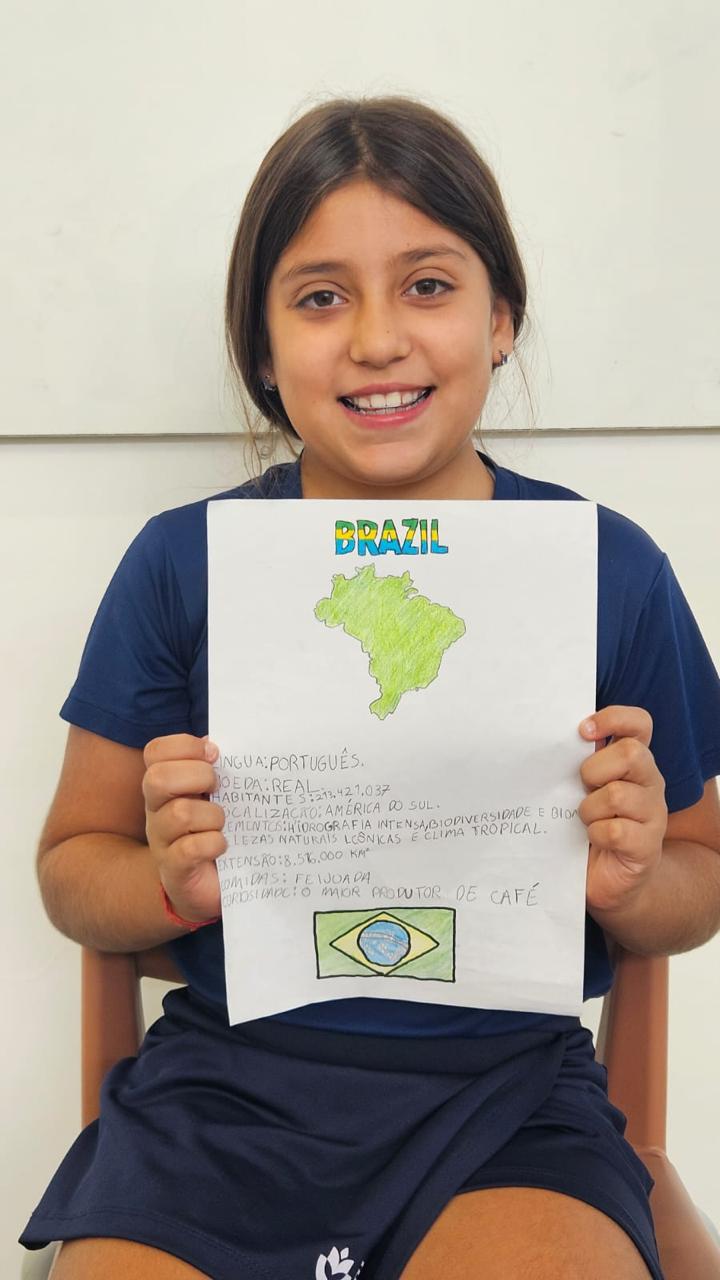 BRAZIL
INGUA: PORTUGUÊS.
OEDA: REAL.
HABITANTES: 213.421.037
OCALIZAÇÃO: AMÉRICA DO SUL.
EMENTOS: HIDROGRAFIA INTENSA, BIODIVERSIDADE E
LEZAS NATURAIS ICÔNICAS E CLIMA TROPICAL.
EXTENSÃO: 8.516.000 KM²
OMIDAS: FEIJOADA
URIOSIDADE: O MAIOR PRODUTOR DE CAFÉ